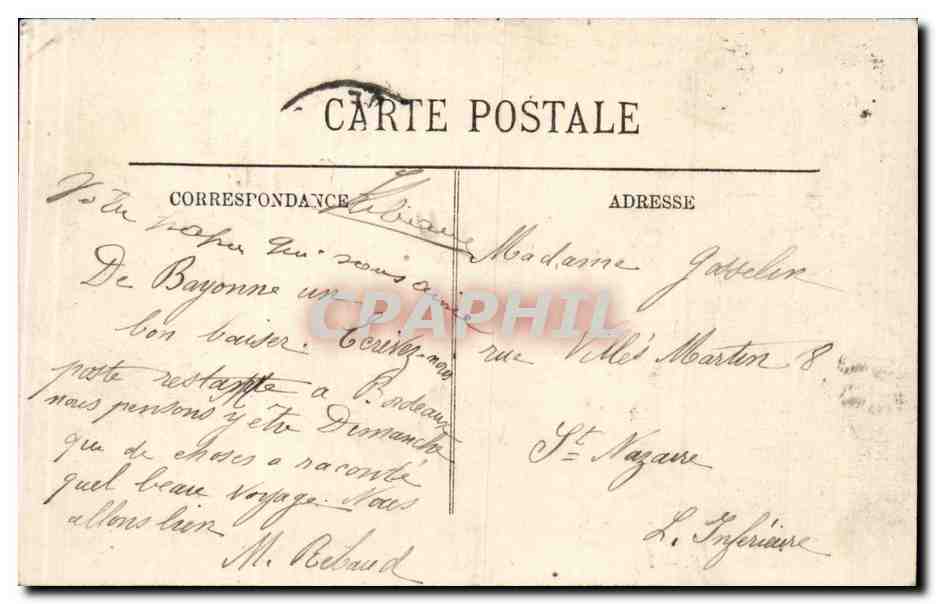 CARTE POSTALE
CORRESPONDANCE
ADRESSE
Votre papa qui vous aime
De Bayonne un
bon baiser. Ecrivez-nous
poste restante a Bordeaux
nous pensons y être Dimanche
que de choses a raconté
quel beau voyage. Nous
allons bien
M. Rebaud
Madame Gosselin
rue Villès Martin 8
St Nazaire
L. Inférieure
CPAPHIL